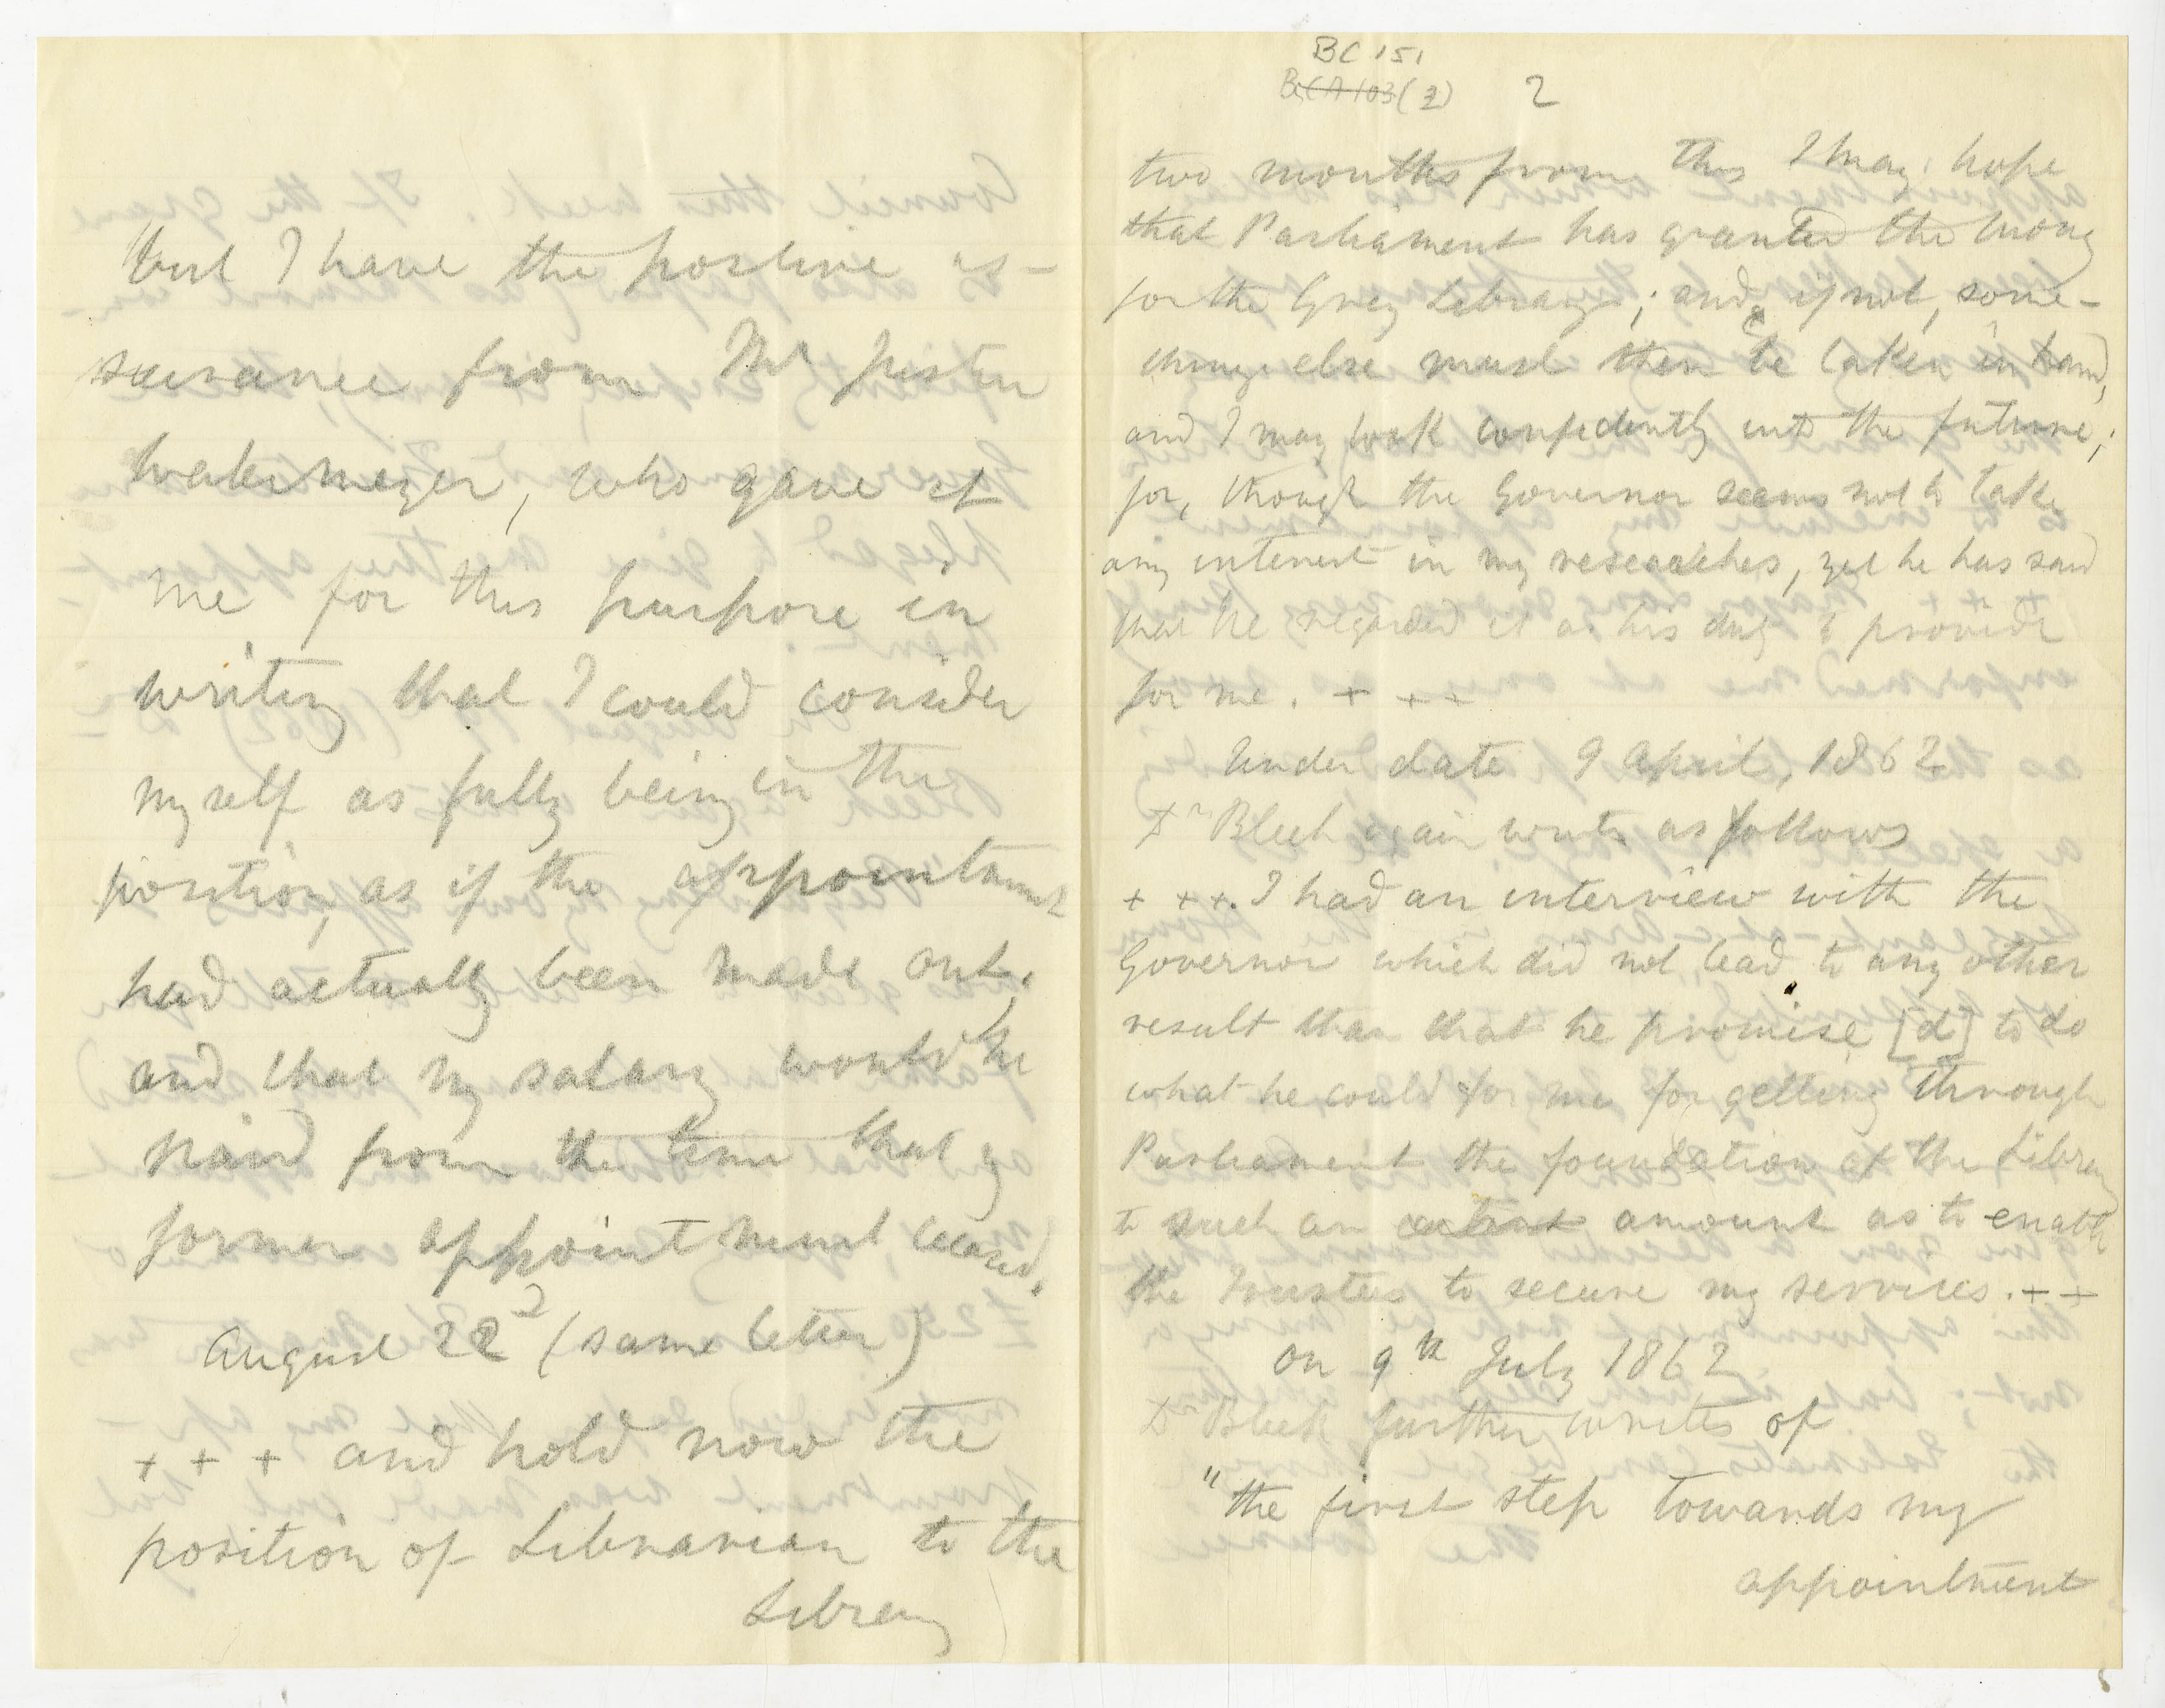 but I have the positive as-
surance from Mr Justice
Watermeyer, who gave it
me for this purpose in
writing that I could consider
myself as fully being in the
position, as if the appointment
had actually been made out;
and that my salary would be
paid from the time that my
former appointment ceased.
August 22 2 (same letter)
+ + + and hold now the
position of Librarian to the
Library
BC 151
BCA 103 (2) 2
two months from this I may hope
that Parliament has granted the money
for the Grey Library; and, if not, some-
thing else must then be taken in hand,
and I may look confidently into the future;
for, though the Governor seems not to take
any interest in my researches, yet he has said
that he regarded it as his duty to provide
for me. + + +
Under date 9 April, 1862
Dr Bleek again writes as follows
+ + +. I had an interview with the
Governor which did not lead to any other
result than that he promise [d] to do
what he could for me for getting through
Parliament the foundation of the Library
to such an extent amount as to enable
the Trustees to secure my services. + +
On 9th July 1862
Dr Bleek further writes of
"the first step towards my
appointment